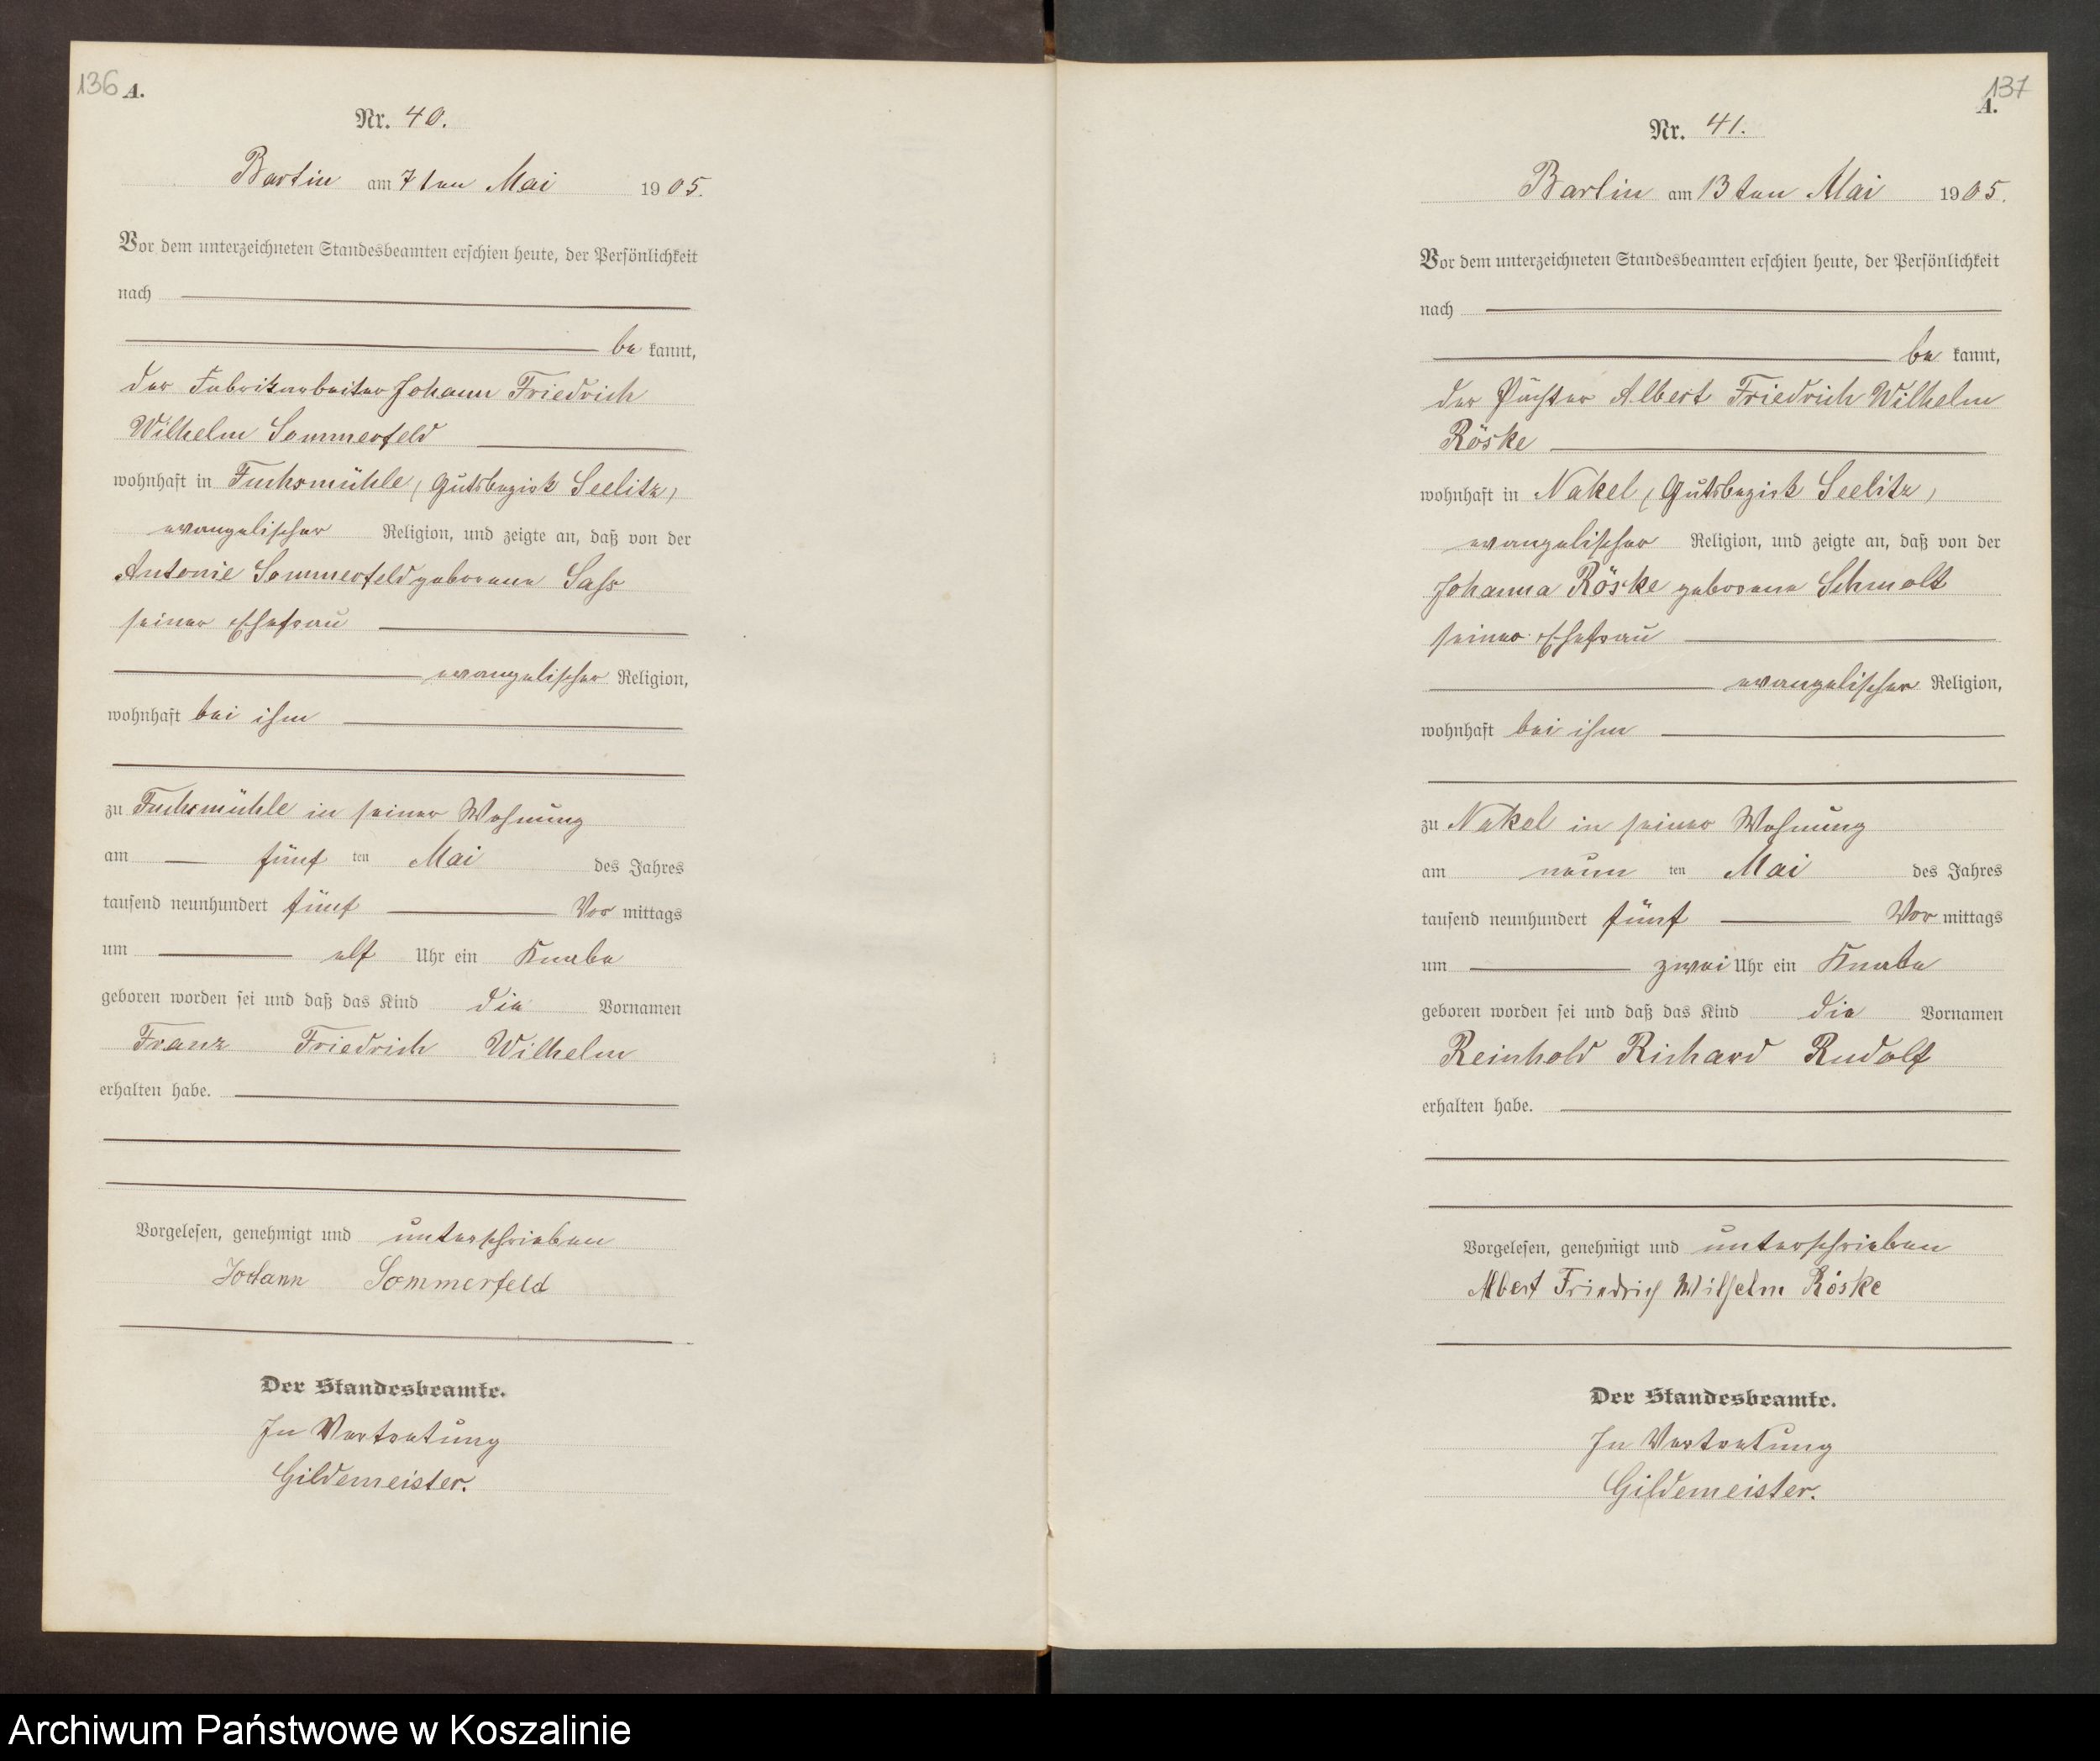 136 A.
Nr. 40.
Bartin am 7ten Mai 1905.
Vor dem unterzeichneten Standesbeamten erschien heute, der Persönlichkeit
nach
be kannt,
der Fabrikarbeiter Johann Friedrich
Wilhelm Sommerfeld
wohnhaft in Fuchsmühle, Gutsbezirk Seelitz,
evangelischer Religion, und zeigte an, daß von der
Antonie Sommerfeld geborene Sass
seiner Ehefrau
evangelischer Religion,
wohnhaft bei ihm
zu Fuchsmühle in seiner Wohnung
am fünf ten Mai des Jahres
tausend neunhundert fünf Vor mittags
um elf Uhr ein Knabe
geboren worden sei und daß das Kind die Vornamen
Franz Friedrich Wilhelm
erhalten habe.
Vorgelesen, genehmigt und unterschrieben
Johann Sommerfeld
Der Standesbeamte.
In Vertretung
Gildemeister.
137
A.
Nr. 41.
Bartin am 13ten Mai 1905.
Vor dem unterzeichneten Standesbeamten erschien heute, der Persönlichkeit
nach
be kannt,
der Pächter Albert Friedrich Wilhelm
Röske
wohnhaft in Nakel, Gutsbezirk Seelitz,
evangelischer Religion, und zeigte an, daß von der
Johanna Röske geborene Schmolt
seiner Ehefrau
evangelischer Religion,
wohnhaft bei ihm
zu Nakel in seiner Wohnung
am neun ten Mai des Jahres
tausend neunhundert fünf Vor mittags
um zwei Uhr ein Knabe
geboren worden sei und daß das Kind die Vornamen
Reinhold Richard Rudolf
erhalten habe.
Vorgelesen, genehmigt und unterschrieben
Albert Friedrich Wilhelm Röske
Der Standesbeamte.
In Vertretung
Gildemeister.
Archiwum Państwowe w Koszalinie